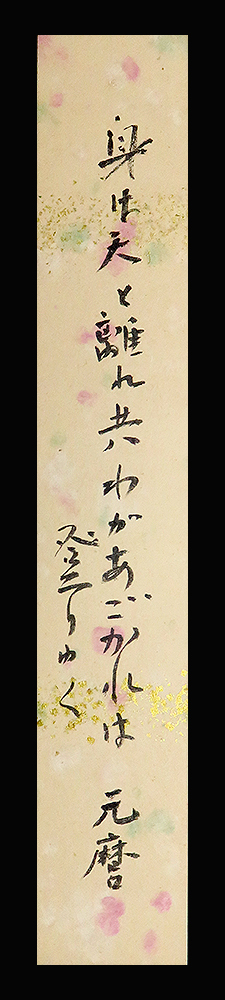 身は天と離れ共わがあごかれは
登りゆく
元麿